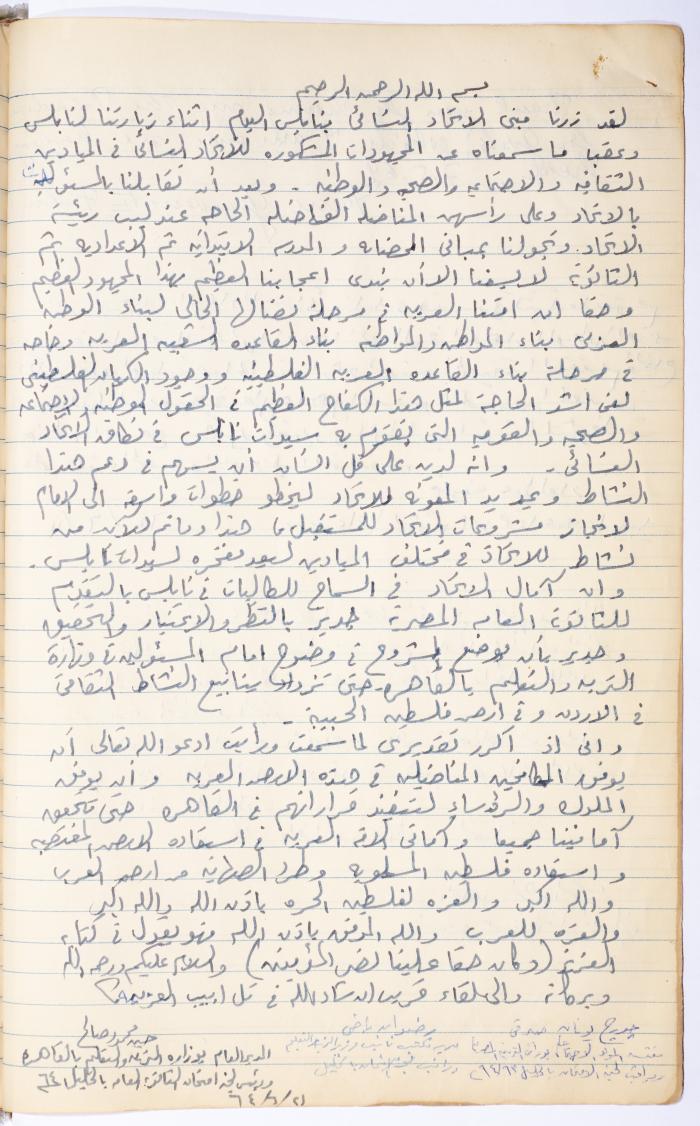 بسم الله الرحمن الرحيم
لقد زرنا مبنى الاتحاد النسائي بنابلس اليوم اثناء زيارتنا لنابلس
وعقب ما سمعناه عن المجهودات المشكوره للاتحاد النسائي في الميادين
الثقافيه والاجتماعيه والصحيه والوطنيه - وبعد أن تقابلنا بالمسئولات
بالاتحاد وعلى رأسهن المناضله الفاضله الحاجه عندليب رئيسة
الاتحاد. وتجولنا بمباني الحضانه والمدرسه الابتدائيه ثم الاعداديه ثم
الثانويه لا يسعنا الا أن نبدى اعجابنا العظيم بهذا المجهود العظيم
وحقا ان امتنا العربيه في مرحلة نضالها الحالى لبناء الوطن
العربى بناء المواطن والمواطنه بناء القاعده الشعبيه العربيه وخاصه
في مرحلة بناء القاعده العربيه الفلسطينيه ووجود الكيان الفلسطينى
لفى اشد الحاجة لمثل هذا الكفاح العظيم في الحقول الوطنيه والاجتماعيه
والصحيه والقوميه التى تقوم به سيدات نابلس في نطاق الاتحاد
النسائى - وانه لدين على كل انسان أن يسهم في دعم هذا
النشاط و يد المعونه للاتحاد ليخطو خطوات واسعه الى الامام
لانجاز مشروعات الاتحاد للمستقبل هذا وما تم للآن من
نشاط للاتحاد في مختلف الميادين ليعد مفخره لسيدات نابلس .
وان آمال الاتحاد في السماح للطالبات في نابلس بالتقدم
للثانويه العامه المصريه جدير بالنظر والاعتبار والتحقيق
وجدير بأن يوضع المشروع في وضوح امام المسئولين في وزارة
التربيه والتعليم بالقاهره حتى تزداد ينابيع النشاط الثقافى
في الاردن وفي ارض فلسطين الحبيبة -
وانى اذ اكرر تقديرى لما سمعت ورأيت ادعو الله تعالى أن
يوفق المكافحين المناضلين في هذه الارض العربيه وأن يوفق
الملوك والرؤساء لتنفيذ قراراتهم في القاهره حتى تتحقق
أمانينا جميعا وأمانى الامه العربيه في استعاده الارض المغتصبه
واستعاده فلسطين المسلوبه وطرد الصهاينه من ارض العرب
والله اكبر والعزه لفلسطين الحره باذن الله والله اكبر
والعزه للعرب والله الموفق باذن الله فهو يقول في كتابه
العزيز (وكان حقا علينا نصر المؤمنين) والسلام عليكم ورحمة الله
وبركاته والى لقاء قريب ان شاء الله في تل ابيب العربيه
محمود صالح
المدير العام بوزاره التربيه والتعليم بالقاهره
ورئيس لجنة امتحان الثانويه العامه بالخليل ٦٤
٢١/٦/٦٤
رضوان
مدير مكتب نائب وزير التربيه والتعليم
جورج